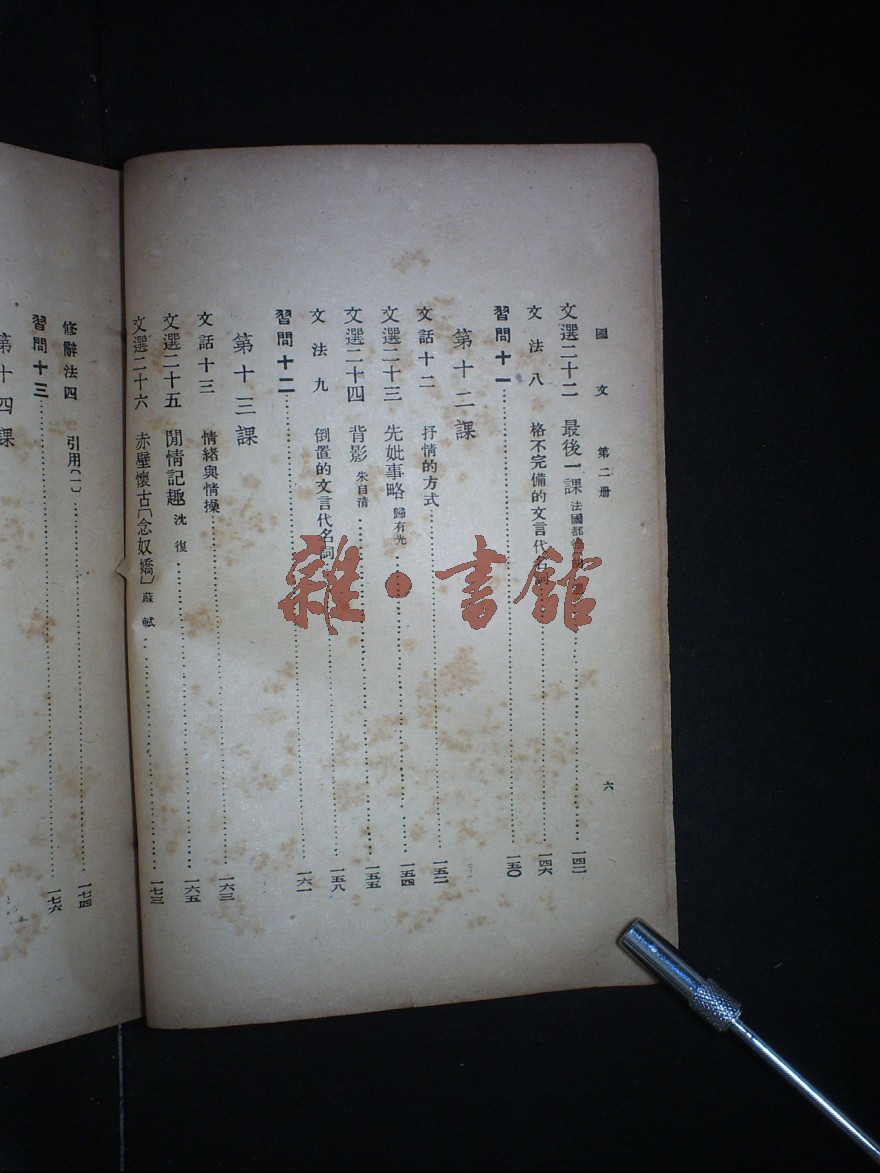 國文 第二册 六
文選二十二 最後一課 法國都德 一四二
文法八 格不完備的文言代名詞 一四六
習問十一 一五〇
第十二課
文話十二 抒情的方式 一五二
文選二十三 先妣事略 歸有光 一五四
文選二十四 背影 朱自清 一五五
文法九 倒置的文言代名詞 一五八
習問十二 一六一
第十三課
文話十三 情緒與情操 一六三
文選二十五 閒情記趣 沈復 一六五
文選二十六 赤壁懷古〔念奴嬌〕 蘇軾 一七三
修辭法四 引用〔一〕 一七四
習問十三 一七六
第十四課
雜·書館